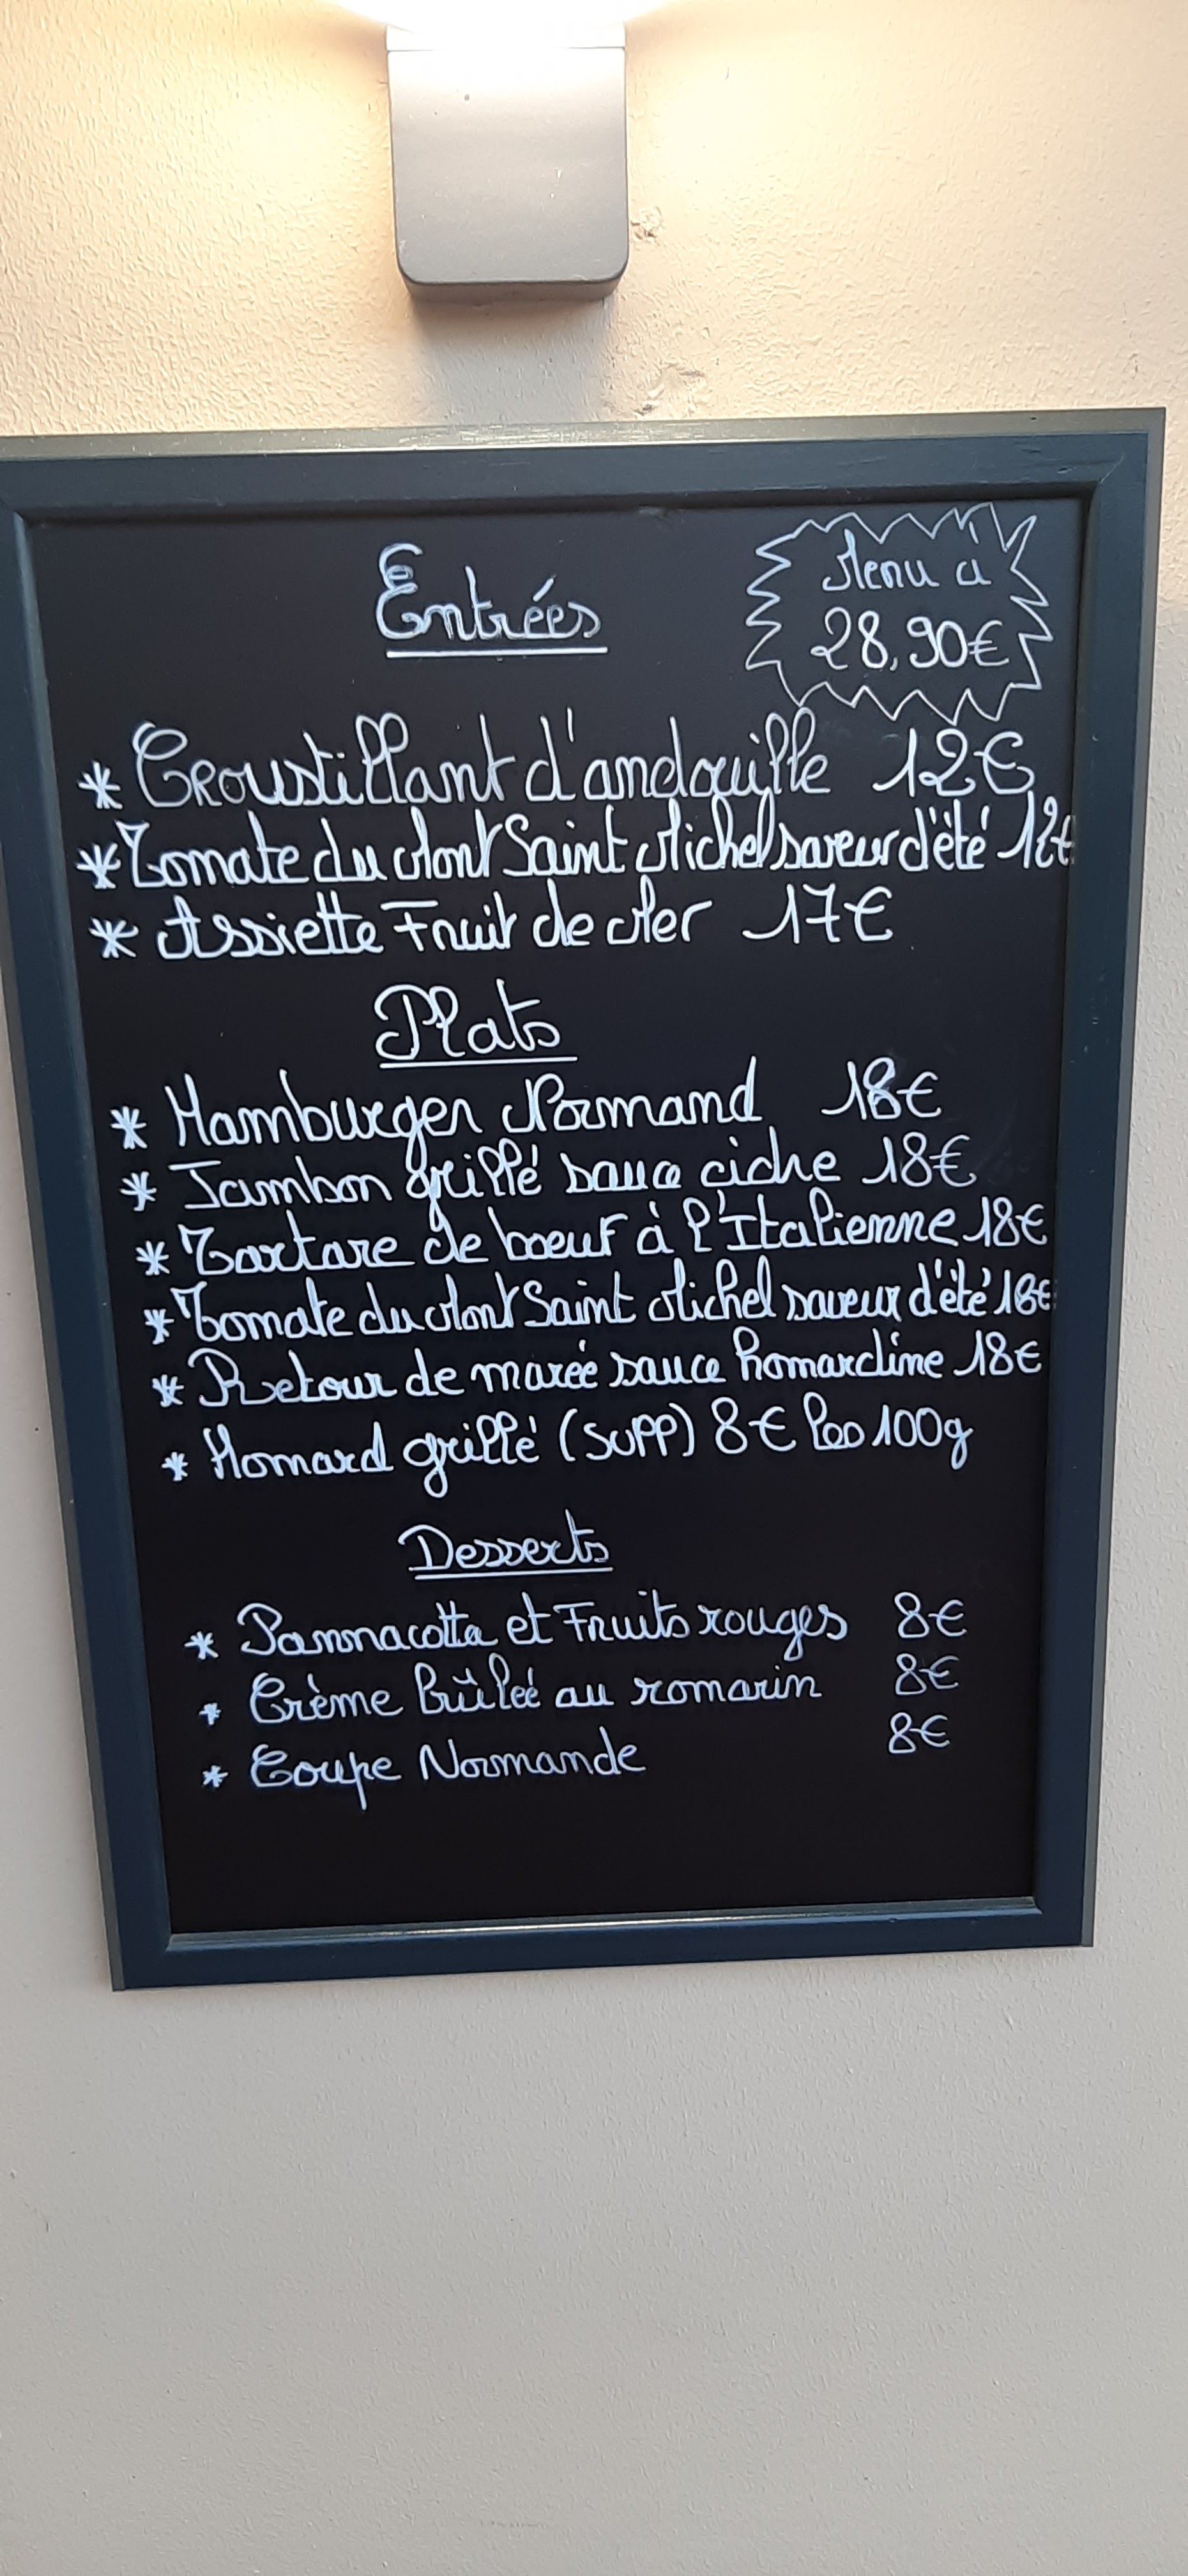 Entrées
Menu à
28,90€
* Croustillant d'andouille 12€
* Tomate du Mont Saint Michel saveur d'été 12€
* Assiette Fruit de Mer 17€
Plats
* Hamburger Normand 18€
* Jambon grillé sauce cidre 18€
* Tartare de boeuf à l'Italienne 18€
* Tomate du Mont Saint Michel saveur d'été 18€
* Retour de marée sauce homardine 18€
* Homard grillé (SUPP) 8€ les 100g
Desserts
* Pannacotta et Fruits rouges 8€
* Crème brûlée au romarin 8€
* Coupe Normande 8€